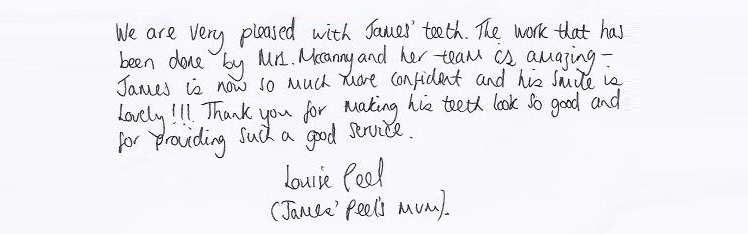 We are very pleased with James' teeth. The work that has
been done by Mrs. Mccanny and her team is amazing –
James is now so much more confident and his smile is
lovely!!! Thank you for making his teeth look so good and
for providing such a good service.
Louise Peel
(James' Peel's mum).